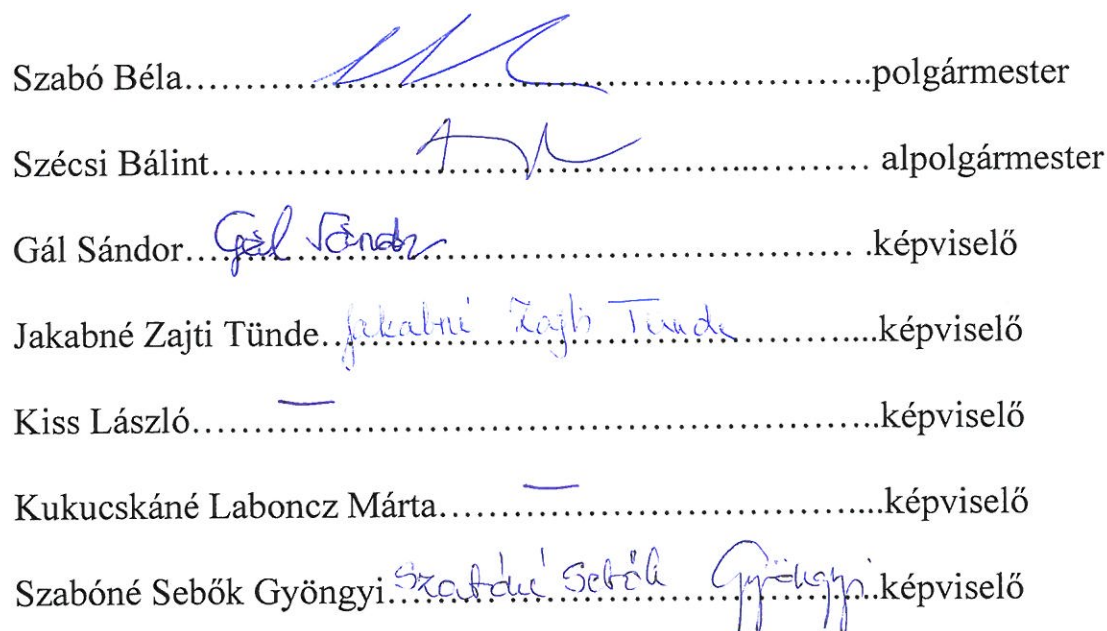 Szabó Béla……………………………………………..polgármester
Szécsi Bálint……………………………………...……… alpolgármester
Gál Sándor…Gál Sándor………………………………… .képviselő
Jakabné Zajti Tünde.Jakabné Zajti Tünde…………....képviselő
Kiss László……………………………………………..képviselő
Kukucskáné Laboncz Márta…………………………....képviselő
Szabóné Sebők Gyöngyi.Szabóné Sebők Gyöngyi..képviselő